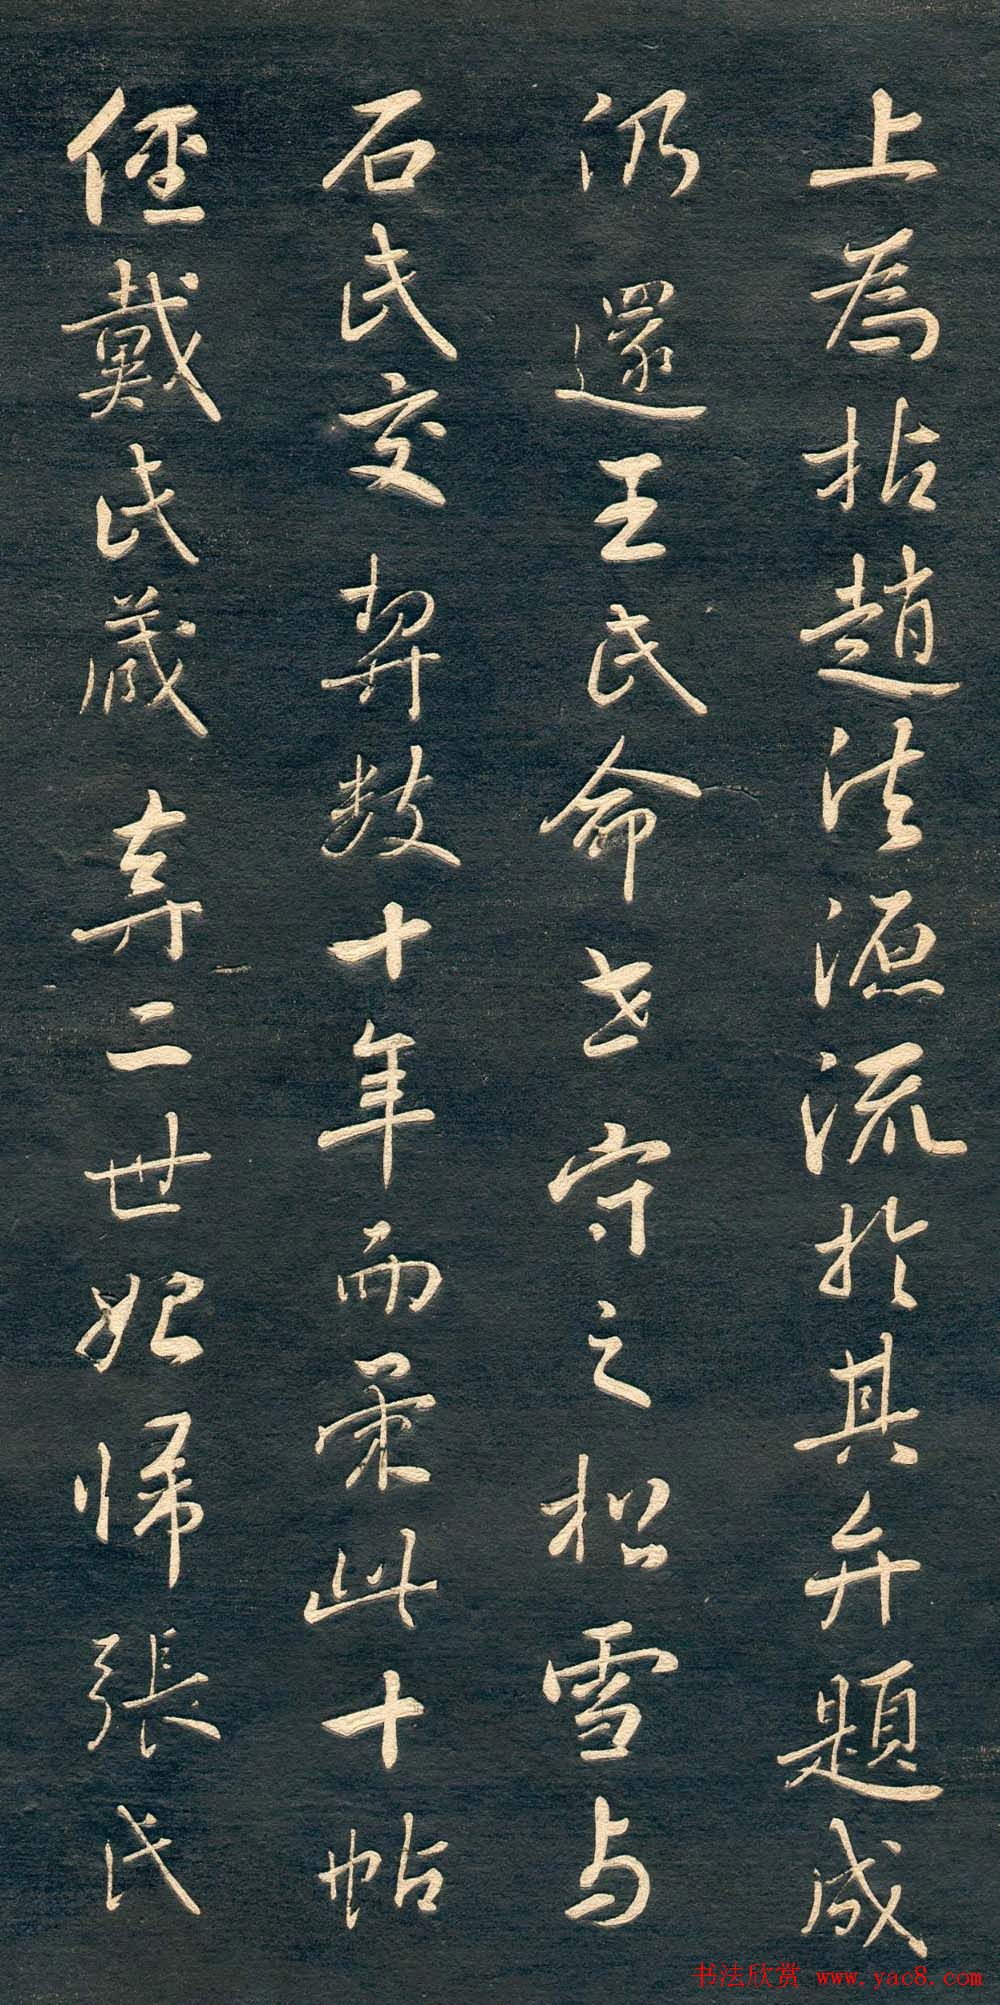 上為拈趙法源流於其弁題成
仍還王氏命世守之松雪与
石氏交契数十年而第此十帖
經戴氏藏弆二世始歸張氏
书法欣赏 www.yac8.com